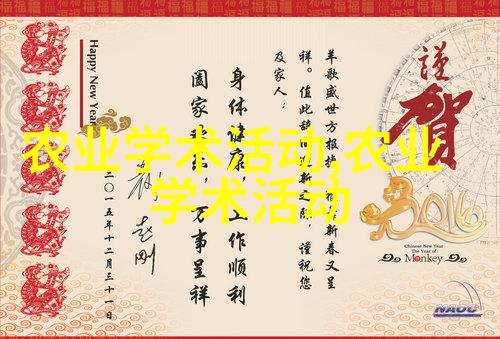 农业学术活动,农业
学术活动
謹
賀
2016
Chinese New Year
The Year of
Monkey
NAOC
羊歌盛世方报捷 新春又呈
祥。值此辞旧迎新之际,谨祝您
及家人:
身体健康,工作顺利
阖家 万事呈祥
赵刚
二〇一五年十二月三十一日
Happy New Year